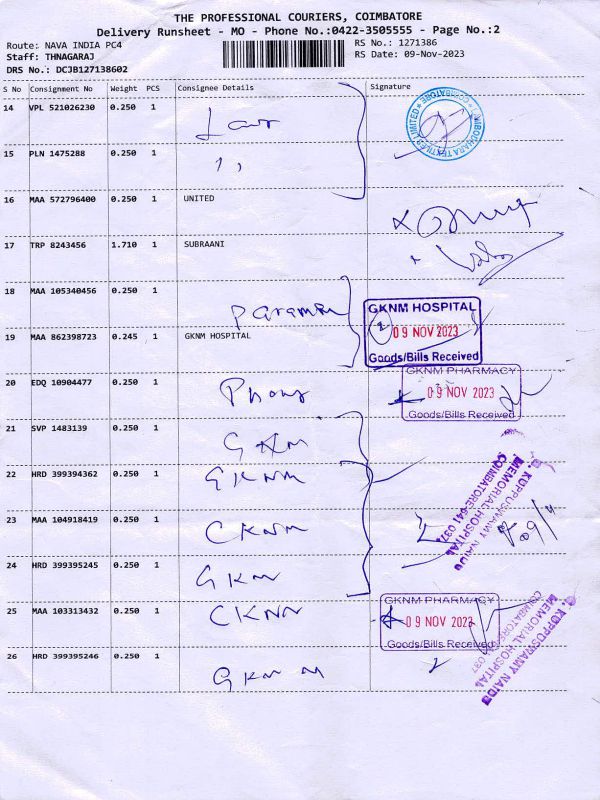 THE PROFESSIONAL COURIERS, COIMBATORE
Delivery Runsheet - MO - Phone No.:0422-3505555 - Page No.:2
Route: NAVA INDIA PC4
RS No.: 1271386
Staff: THNAGARAJ
RS Date: 09-Nov-2023
DRS No.: DCJB127138602
S No Consignment No Weight PCS Consignee Details Signature
14 VPL 521026230 0.250 1
15 PLN 1475288 0.250 1 ,,
16 MAA 572796400 0.250 1 UNITED
17 TRP 8243456 1.710 1 SUBRAANI
18 MAA 105340456 0.250 1
GKNM HOSPITAL
2 09 NOV 2023
Goods/Bills Received
19 MAA 862398723 0.245 1 GKNM HOSPITAL
GKNM PHARMACY
09 NOV 2023
Goods/Bills Received
20 EDQ 10904477 0.250 1
21 SVP 1483139 0.250 1 GKM
22 HRD 399394362 0.250 1 GKNM
G. KUPPUSWAMY NAIDU
MEMORIAL HOSPITAL
COIMBATORE-641 037.
23 MAA 104918419 0.250 1 CKNM
24 HRD 399395245 0.250 1 GKM
25 MAA 103313432 0.250 1 CKNM
GKNM PHARMACY
09 NOV 2023
Goods/Bills Received
G. KUPPUSWAMY NAIDU
MEMORIAL HOSPITAL
26 HRD 399395246 0.250 1 GKNM